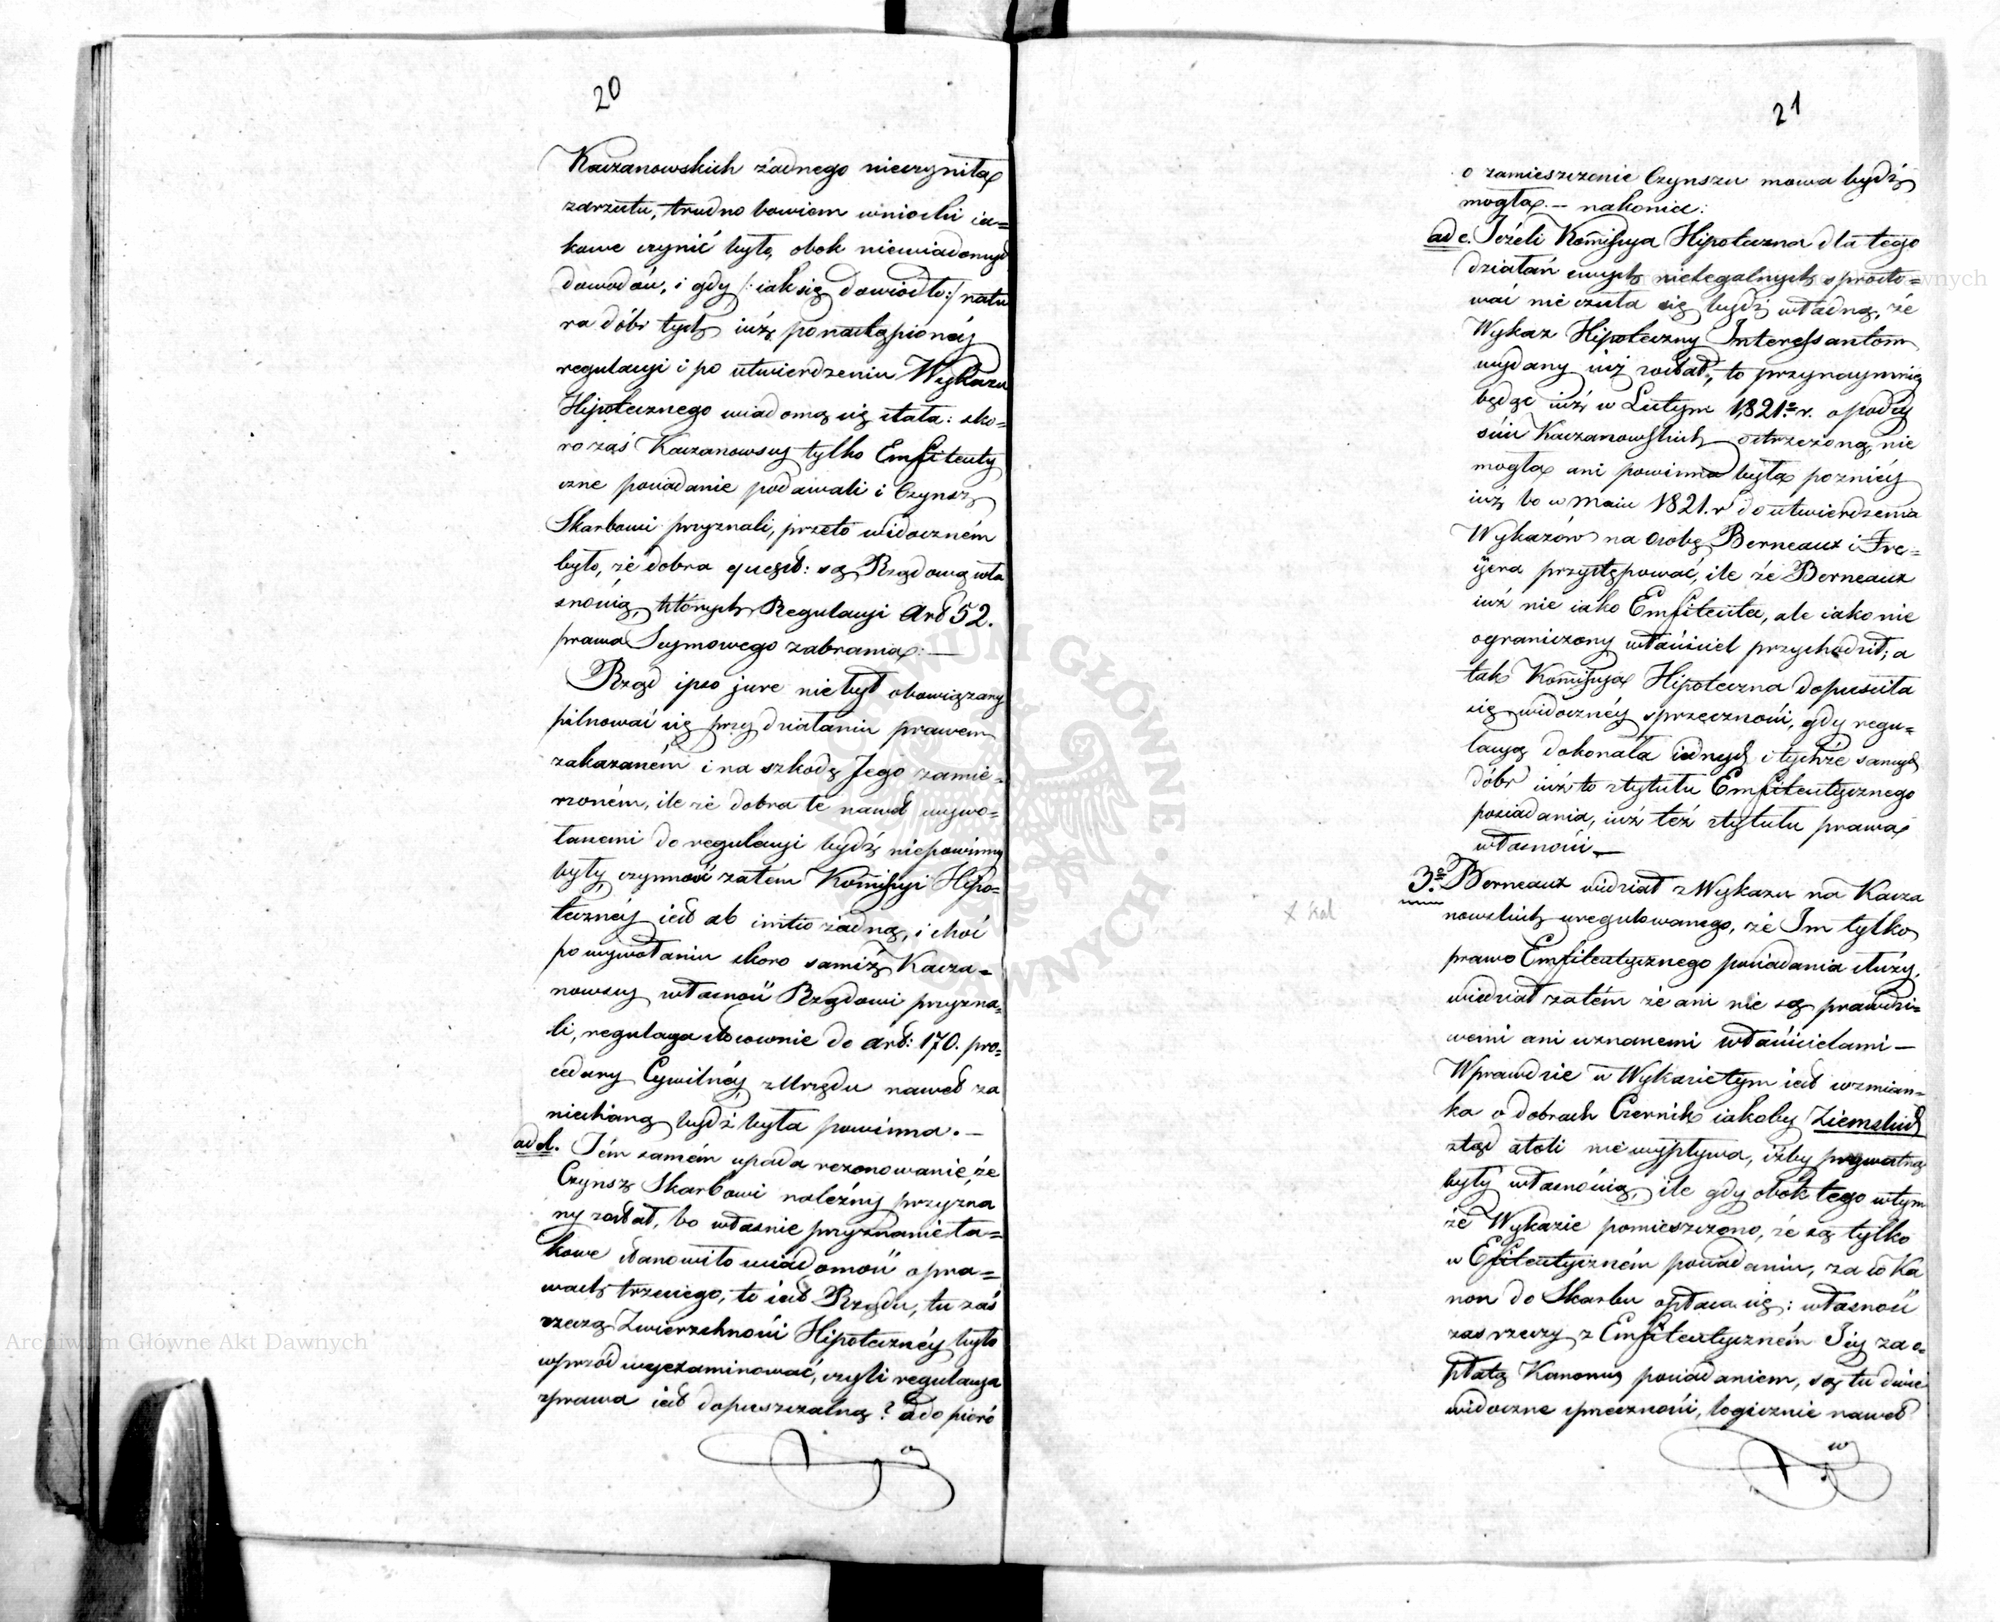 20
Kaczanowskich żadnego nieczyniła
zarzutu, trudno bowiem wnioski ia=
kowe czynić było, obok niewiadomych
dowodów, i gdy /: iak się dowiodło :/ natu
ra dóbr tych iuż po nastąpionéj
regulacyi i po utwierdzeniu Wykazu
Hipotecznego wiadomą się stała: sko=
ro zaś Kaczanowscy tylko Emfiteuty
czne posiadanie podawali i Czynsz
Skarbowi przyznali, przeto widoczném
było, że dobra quest: są Rządową wła
snością, których Regulacyi Art 52.
prawa Seymowego zabrania. —
Rząd ipso jure nie był obowiązany
pilnować się przy działaniu prawem
zakazaném i na szkodę Jego zamie=
rzoném, ile że dobra te nawet wywo=
łanemi do regulacyi bydź niepowinny
były, czynność zatém Kommissyi Hipo=
tecznéy iest ab initio żadną, i choć
po wywołaniu skoro samiż Kacza=
nowscy własność Rządowi przyzna=
li, regulacya stosownie do art: 170. pro=
cedury Cywilnéy z Urzędu nawet za
niechaną bydź była powinna. —
ad d. Tém samém upada rezonowanie, że
Czynsz Skarbowi należny przyzna
ny został, bo własnie przyznanie ta=
kowe stanowiło wiadomość o pra=
wach trzeciego, to iest Rządu, tu zaś
rzeczą Zwierzchności Hipotecznéy było
wprzód wyexaminować, czyli regulacya
zprawa iest dopuszczalną? a dopiéro
o
21
o zamieszczenie Czynszu mowa bydź
mogła. — nakoniec:
ad e. Jeżeli Kommissya Hipoteczna dla tego
działań swych nielegalnych sprosto=
wać nie czuła się bydź władną, że
Wykaz Hipoteczny Interessantom
wydany iuż został, to przynaymniéy
będąc iuż w Lutym 1821. r. o podey
ściu Kaczanowskich ostrzeżoną, nie
mogła ani powinna była poźniéy
iuż bo w Maiu 1821. r do utwierdzenia
Wykazów na osobę Berneaux i Fre=
yera przystępować, ile że Berneaux
iuż nie iako Emfiteuta, ale iako nie
ograniczony właściciel przychodził; a
tak Kommissya Hipoteczna dopuściła
się widocznéy sprzeczności, gdy regu=
lacyą dokonała iednych i tychże samych
dóbr iuż to z tytułu Emfiteutycznego
posiadania, iuż też z tytułu prawa
własności. —
3o. Berneaux widział z Wykazu na Kacza
nowskich uregulowanego, że Im tylko
prawo Emfiteutycznego posiadania służy,
wiedział zatém że ani nie są prawdzi=
wemi ani uznanemi właścicielami —
Wprawdzie w Wykazie tym iest wzmian=
ka o dobrach Czernik iakoby Ziemskich
ztąd atoli nie wypływa, iżby prywatną
były własnością, ile gdy obok tego w tym
że Wykazie pomieszczono, że są tylko
w Efiteutyczném posiadaniu, za co Ka
non do Skarbu opłaca się: własność
zaś rzeczy z Emfiteutyczném Jéy za o=
płatą Kanonu posiadaniem, są tu dwie
widoczne sprzeczności, logicznie nawet
w